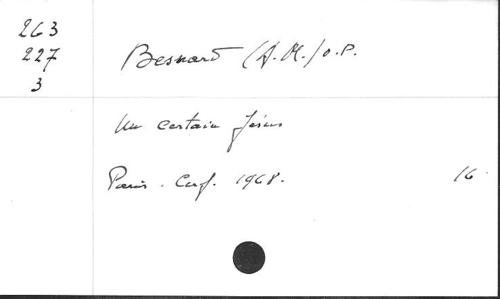 263
227
3
Besnard (A.M.) o.p.
Un certain Jésus
Paris. Cerf. 1968. 16